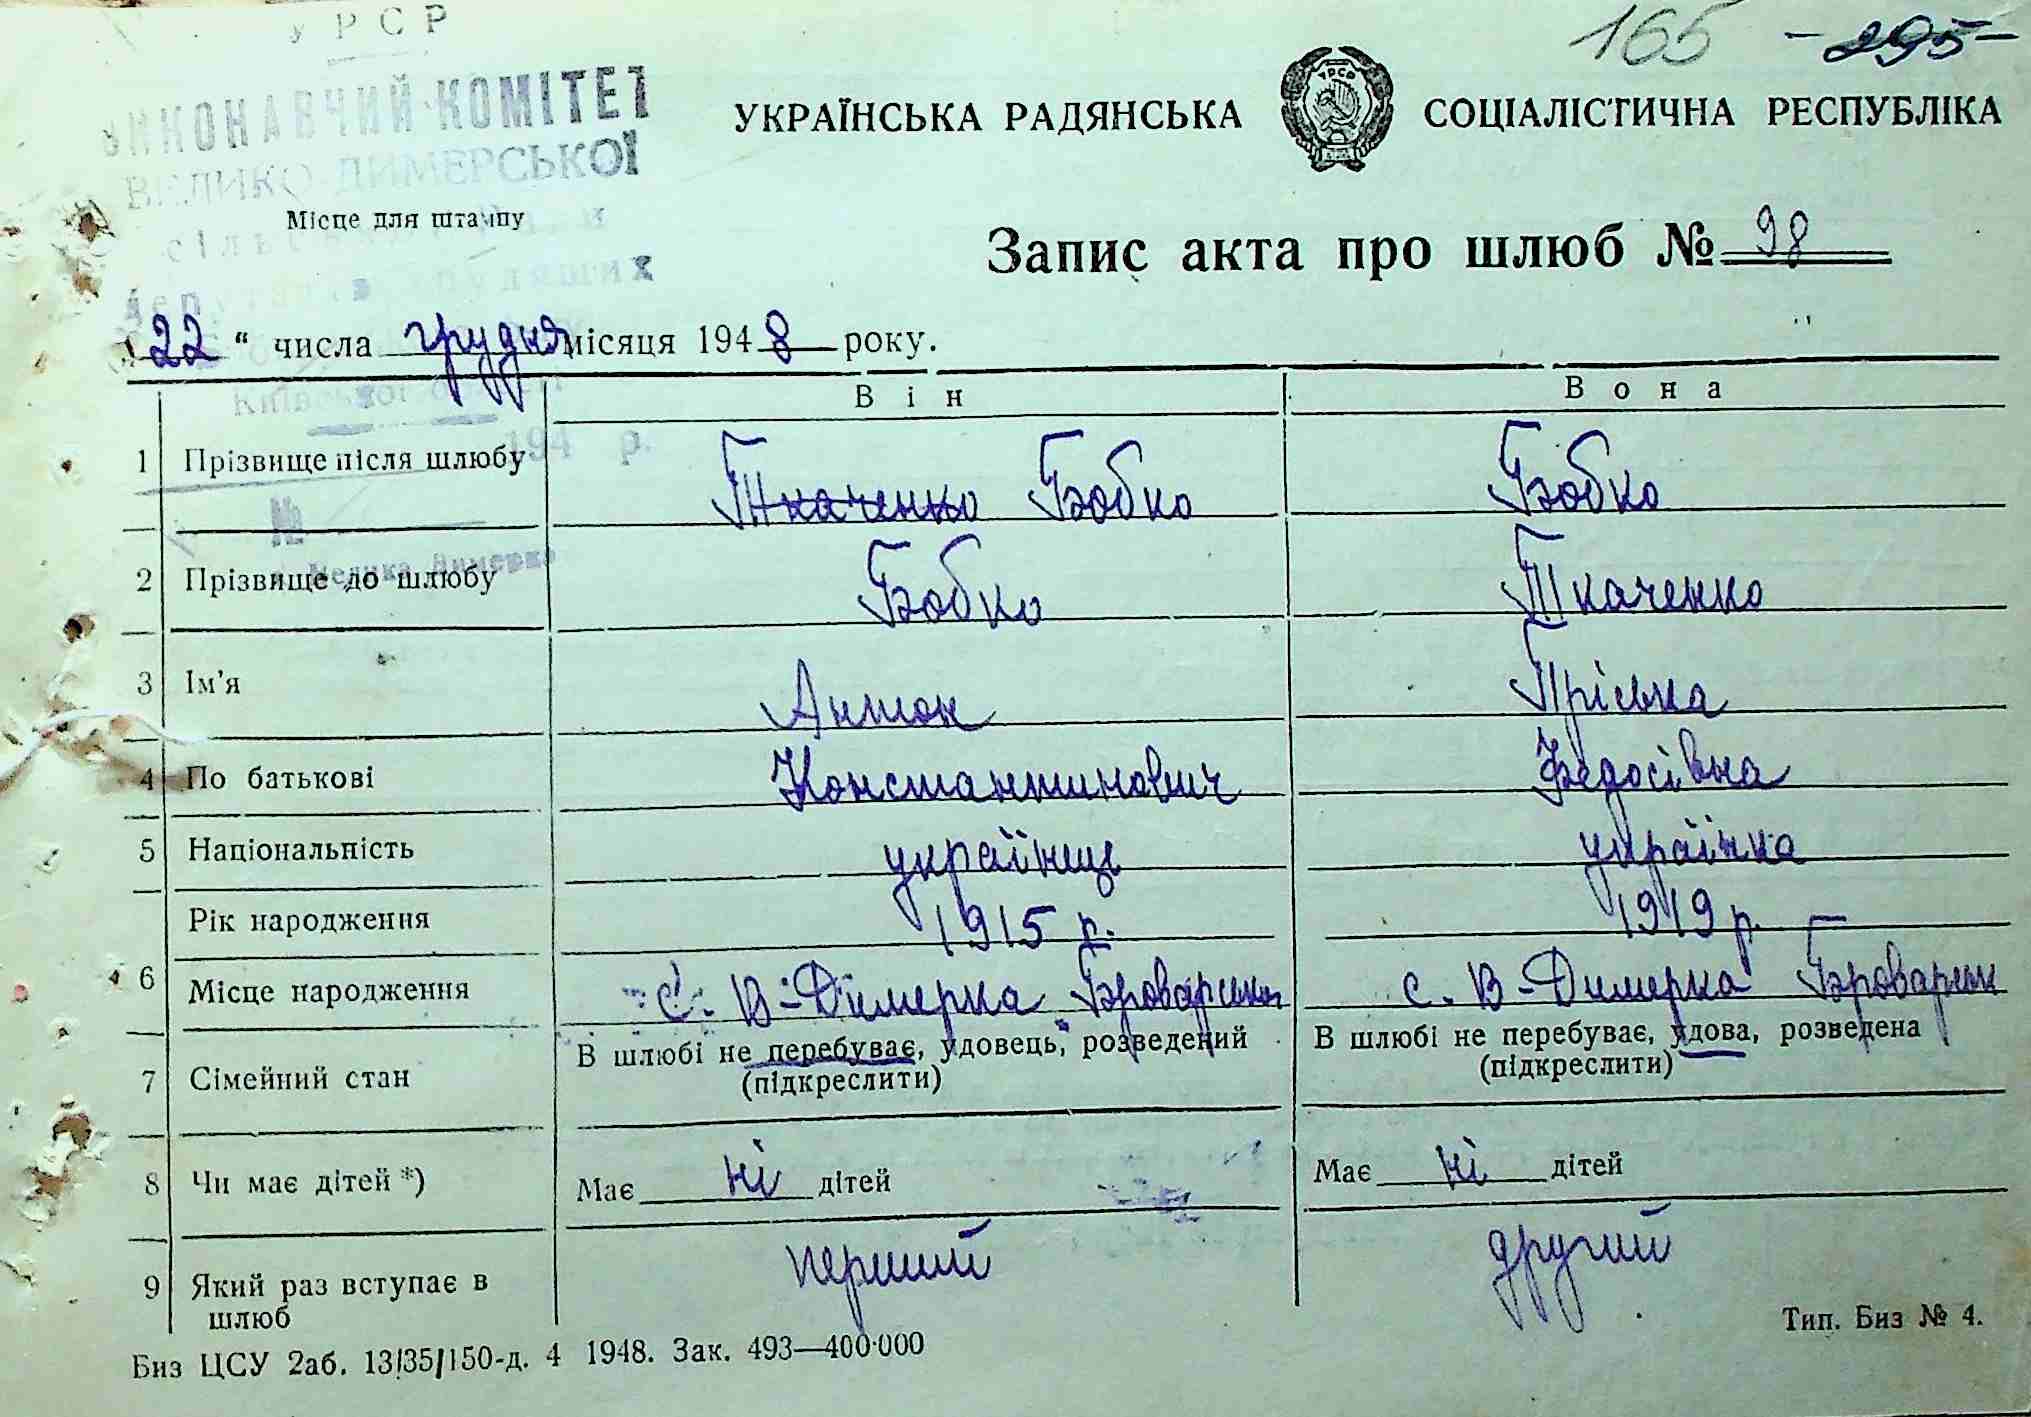 УРСР
165 -295-
ВИКОНАВЧИЙ КОМІТЕТ
УКРАЇНСЬКА РАДЯНСЬКА СОЦІАЛІСТИЧНА РЕСПУБЛІКА
ВЕЛИКО-ДИМЕРСЬКОЇ
Місце для штампу
Запис акта про шлюб № 98
22 " числа грудня місяця 1948 року.
Київської
194 р.
№
Велика Димерка
Він Вона
1 Прізвище після шлюбу Ткаченко Бобко Бобко
2 Прізвище до шлюбу Бобко Ткаченко
3 Ім'я Антон Пріська
4 По батькові Константинович Федосівна
5 Національність українець українка
Рік народження 1915 р. 1919 р.
6 Місце народження с. В-Димерка с. В-Димерка
7 Сімейний стан В шлюбі не перебуває, удовець, розведений В шлюбі не перебуває, удова, розведена
(підкреслити) (підкреслити)
8 Чи має дітей *) Має ні дітей Має ні дітей
9 Який раз вступає в шлюб перший другий
Тип. Биз № 4.
Биз ЦСУ 2аб. 13/35/150-д. 4 1948. Зак. 493—400·000